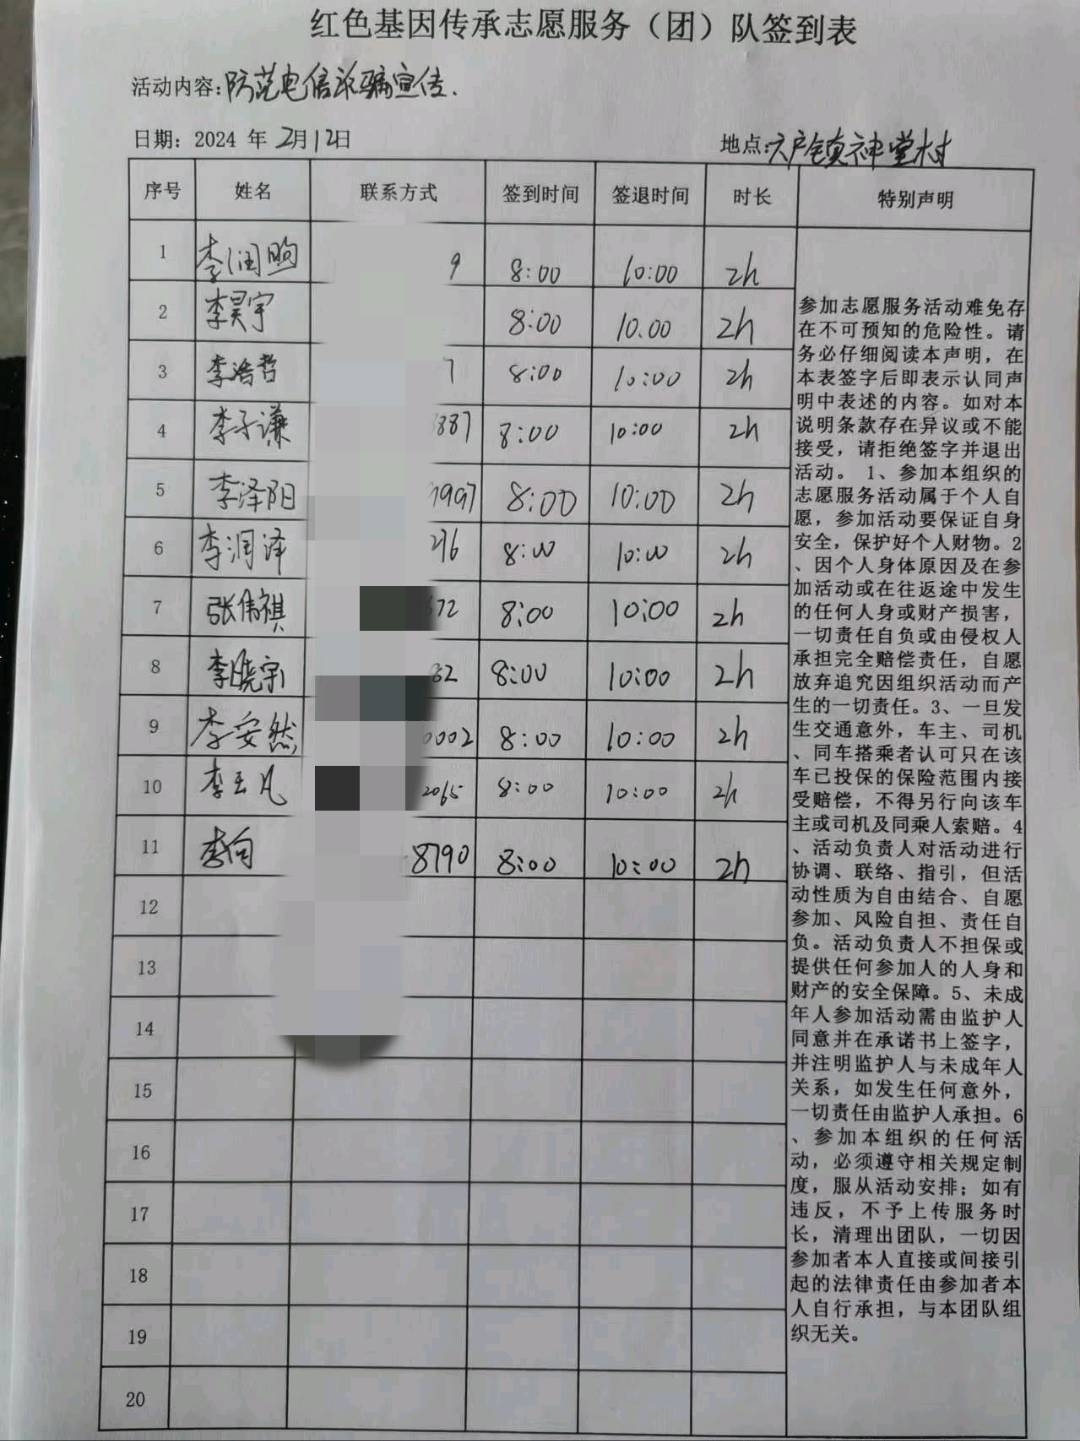 红色基因传承志愿服务（团）队签到表
活动内容：防范电信诈骗宣传.
日期：2024 年 2月12日
地点：六户镇神堂村
序号 姓名 联系方式 签到时间 签退时间 时长 特别声明
1 李润煦 9 8:00 10:00 2h
2 李昊宇 8:00 10.00 2h
3 李浩哲 8:00 10:00 2h
4 李子谦 887 8:00 10:00 2h
5 李泽阳 1997 8:00 10:00 2h
6 李润泽 276 8:00 10:00 2h
7 张伟祺 72 8:00 10:00 2h
8 李晓宗 62 8:00 10:00 2h
9 李安然 0002 8:00 10:00 2h
10 李王凡 2065 8:00 10:00 2h
11 李向 8790 8:00 10:00 2h
12
13
14
15
16
17
18
19
20
参加志愿服务活动难免存
在不可预知的危险性。请
务必仔细阅读本声明，在
本表签字后即表示认同声
明中表述的内容。如对本
说明条款存在异议或不能
接受，请拒绝签字并退出
活动。 1、参加本组织的
志愿服务活动属于个人自
愿，参加活动要保证自身
安全，保护好个人财物。2
、因个人身体原因及在参
加活动或在往返途中发生
的任何人身或财产损害，
一切责任自负或由侵权人
承担完全赔偿责任，自愿
放弃追究因组织活动而产
生的一切责任。3、一旦发
生交通意外，车主、司机
、同车搭乘者认可只在该
车已投保的保险范围内接
受赔偿，不得另行向该车
主或司机及同乘人索赔。4
、活动负责人对活动进行
协调、联络、指引，但活
动性质为自由结合、自愿
参加、风险自担、责任自
负。活动负责人不担保或
提供任何参加人的人身和
财产的安全保障。5、未成
年人参加活动需由监护人
同意并在承诺书上签字，
并注明监护人与未成年人
关系，如发生任何意外，
一切责任由监护人承担。6
、参加本组织的任何活
动，必须遵守相关规定制
度，服从活动安排；如有
违反，不予上传服务时
长，清理出团队，一切因
参加者本人直接或间接引
起的法律责任由参加者本
人自行承担，与本团队组
织无关。